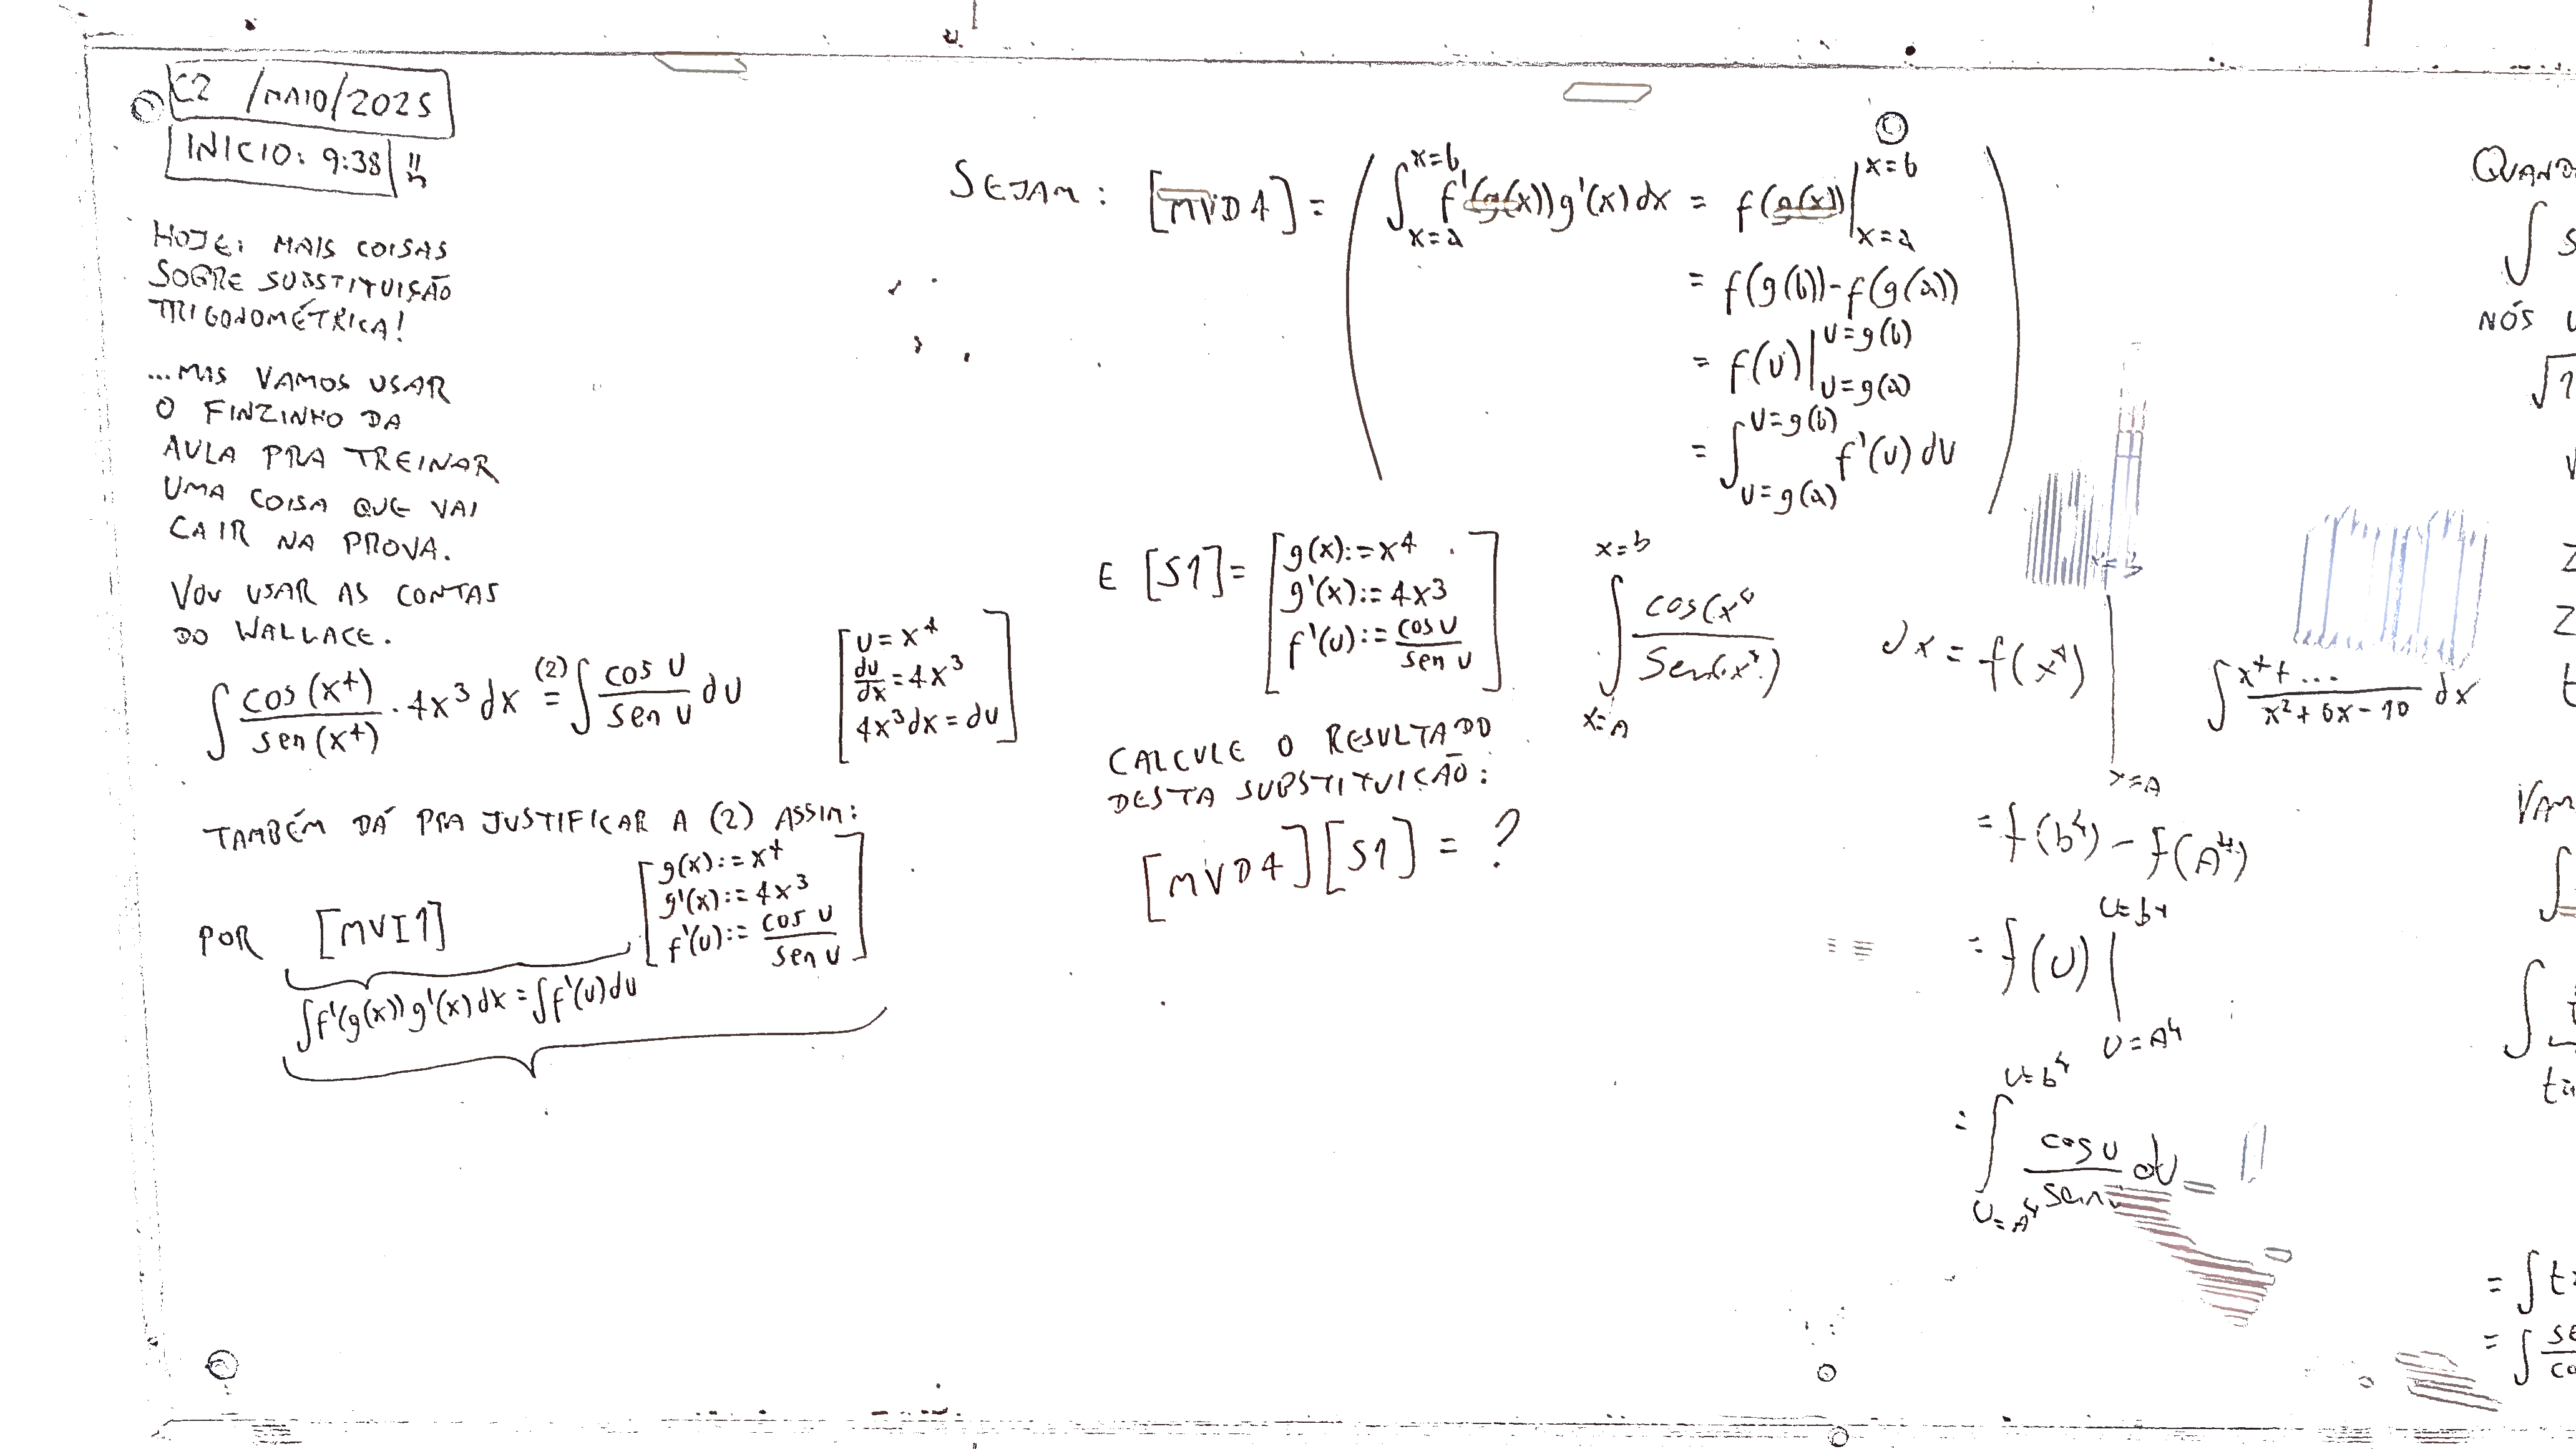 C2 /MAIO/2025
INÍCIO: 9:38 !!
HOJE: MAIS COISAS
SOBRE SUBSTITUIÇÃO
TRIGONOMÉTRICA!
...MAS VAMOS USAR
O FINZINHO DA
AULA PRA TREINAR
UMA COISA QUE VAI
CAIR NA PROVA.
VOU USAR AS CONTAS
DO WALLACE.
∫ cos(x⁴)/sen(x⁴) · 4x³ dx (2)= ∫ cos u/sen u du
[u = x⁴
du/dx = 4x³
4x³dx = du]
TAMBÉM DÁ PRA JUSTIFICAR A (2) ASSIM:
POR [MVI1] [g(x):=x⁴
g'(x):=4x³
f'(u):= cos u/sen u]
∫f'(g(x))g'(x)dx = ∫f'(u)du
SEJAM: [MVD4] = ( ∫_{x=a}^{x=b} f'(g(x))g'(x)dx = f(g(x))|_{x=a}^{x=b}
= f(g(b))-f(g(a))
= f(u)|_{u=g(a)}^{u=g(b)}
= ∫_{u=g(a)}^{u=g(b)} f'(u)du )
E [S1] = [g(x):=x⁴
g'(x):=4x³
f'(u):= cos u/sen u]
CALCULE O RESULTADO
DESTA SUBSTITUIÇÃO:
[MVD4][S1] = ?
∫_{x=A}^{x=b} cos(x⁴/sen(x⁴) dx = f(x⁴) |_{x=A}^{x=b}
= f(b⁴) - f(A⁴)
= f(u) |_{u=A⁴}^{u=b⁴}
= ∫_{u=A⁴}^{u=b⁴} cos u/sen u du =
∫ x⁴+.../x²+6x-10 dx
∫
NÓS
∫
∫
= ∫
= ∫